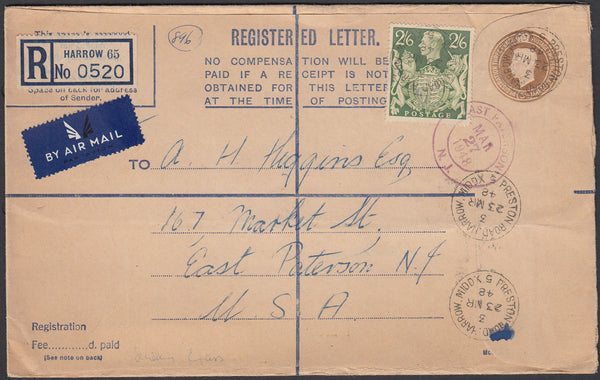 (896)
REGISTERED LETTER.
R HARROW 65
No 0520
Space on back for address
of Sender.
NO COMPENSATION WILL BE
PAID IF A RECEIPT IS NOT
OBTAINED FOR THIS LETTER
AT THE TIME OF POSTING
2/6 2/6
POSTAGE
BY AIR MAIL
TO A. H. Higgins Esq
167 Market St.
East Paterson N.J
U S A
EAST PATERSON
MAR
27
1948
N. J.
PRESTON ROAD, HARROW, MIDDX 5
3
23 MR
48
PRESTON ROAD, HARROW, MIDDX 5
3
23 MR
48
Registration
Fee............d. paid
(See note on back)